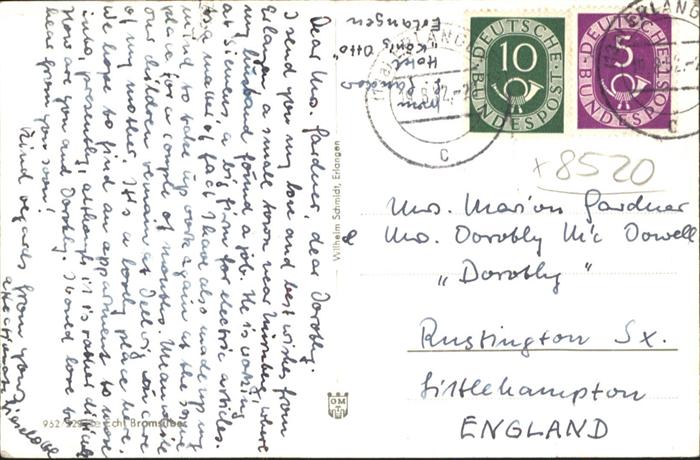 Dear Mrs. Gardner, dear Dorothy.
I send you my love and best wishes from
Erlangen, a small town near Nürnberg, where
my husband found a job. He is working
at Siemens, a big firm for electric articles.
As a matter of fact I have also made up my
mind to take up work again at the same
place for a couple of months. Meanwhile
our children remain at in care
of my mother. It's a lovely place here.
We hope to find an appartment to move
into, presently, although it is rather difficult.
How are you and Dorothy. I would love to
hear from you soon!
Kind regards from your
affectionate Lieselotte
from
Hotel
"König Otto"
Erlangen
Wilhelm Schmidt, Erlangen
Echt Bromsilber
OM
ERLANGEN
c
DEUTSCHE BUNDESPOST
10
DEUTSCHE BUNDESPOST
5
ERLANGEN
x 8520
Mrs. Marion Gardner
& Mrs. Dorothy Mc Dowell
„Dorothy"
Rustington Sx.
Littlehampton
ENGLAND